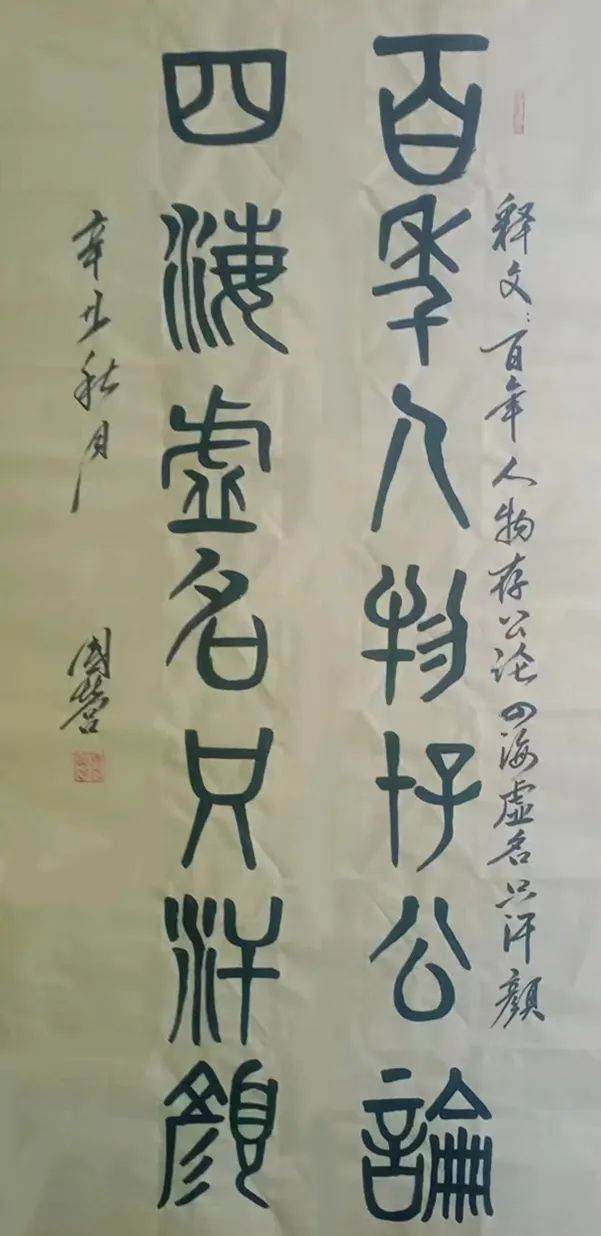 释文:百年人物存公论四海虚名只汗颜
百年人物存公論
四海虚名只汗顔
辛丑秋月
国营